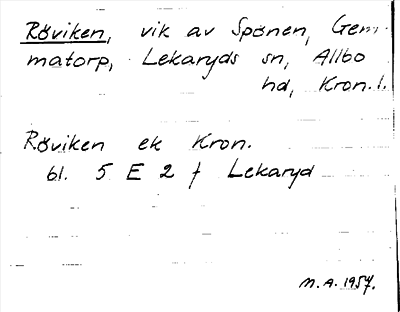 Röviken, vik av Spånen, Gem-
matorp, Lekaryds sn, Allbo
hd, Kron. l.
Röviken ek Kron.
bl. 5 E 2 f Lekaryd
M. A. 1957.